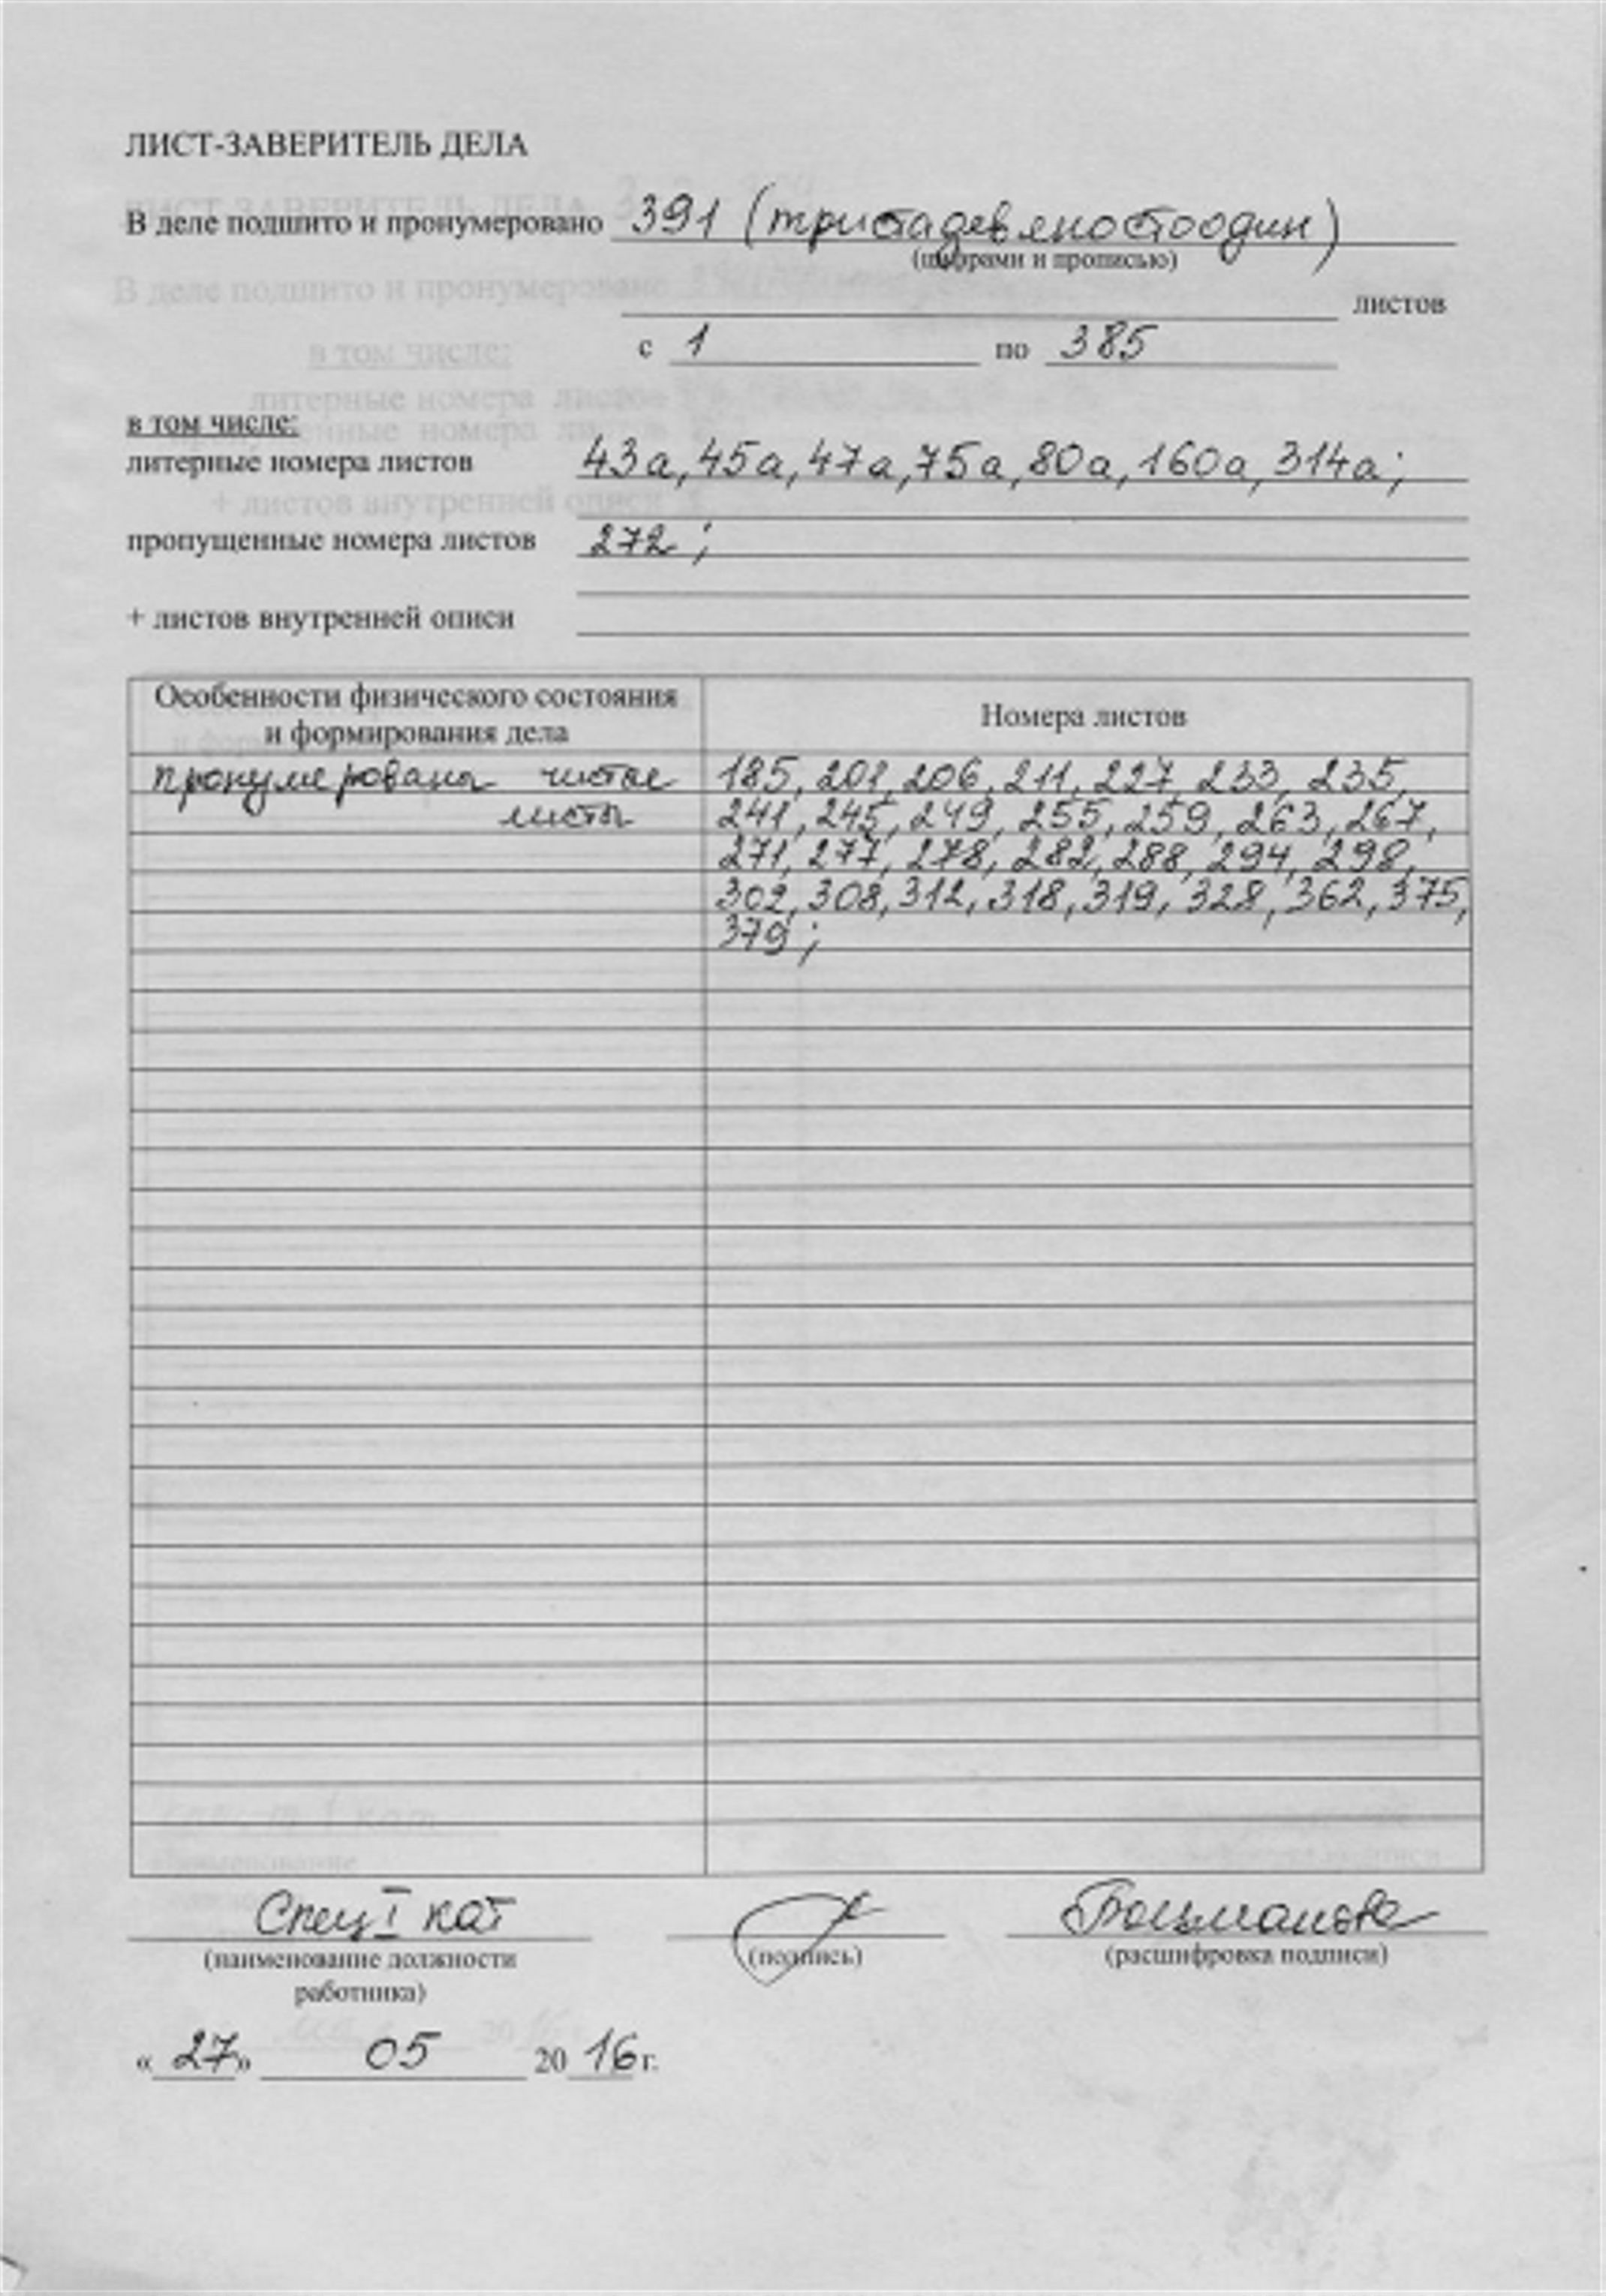 ЛИСТ-ЗАВЕРИТЕЛЬ ДЕЛА
В деле подшито и пронумеровано 391 (тристадевяностоодин)
(цифрами и прописью)
листов
с 1 по 385
в том числе:
литерные номера листов 43а, 45а, 47а, 75а, 80а, 160а, 314а;
пропущенные номера листов 272;
+ листов внутренней описи
Особенности физического состояния
и формирования дела
Номера листов
пронумерованы чистые 185, 201, 206, 211, 227, 233, 235,
листы 241, 245, 249, 255, 259, 263, 267,
271, 277, 278, 282, 288, 294, 298,
302, 308, 312, 318, 319, 328, 362, 375,
379;
Спец I кат
(наименование должности (подпись) (расшифровка подписи)
работника)
«27» 05 2016 г.